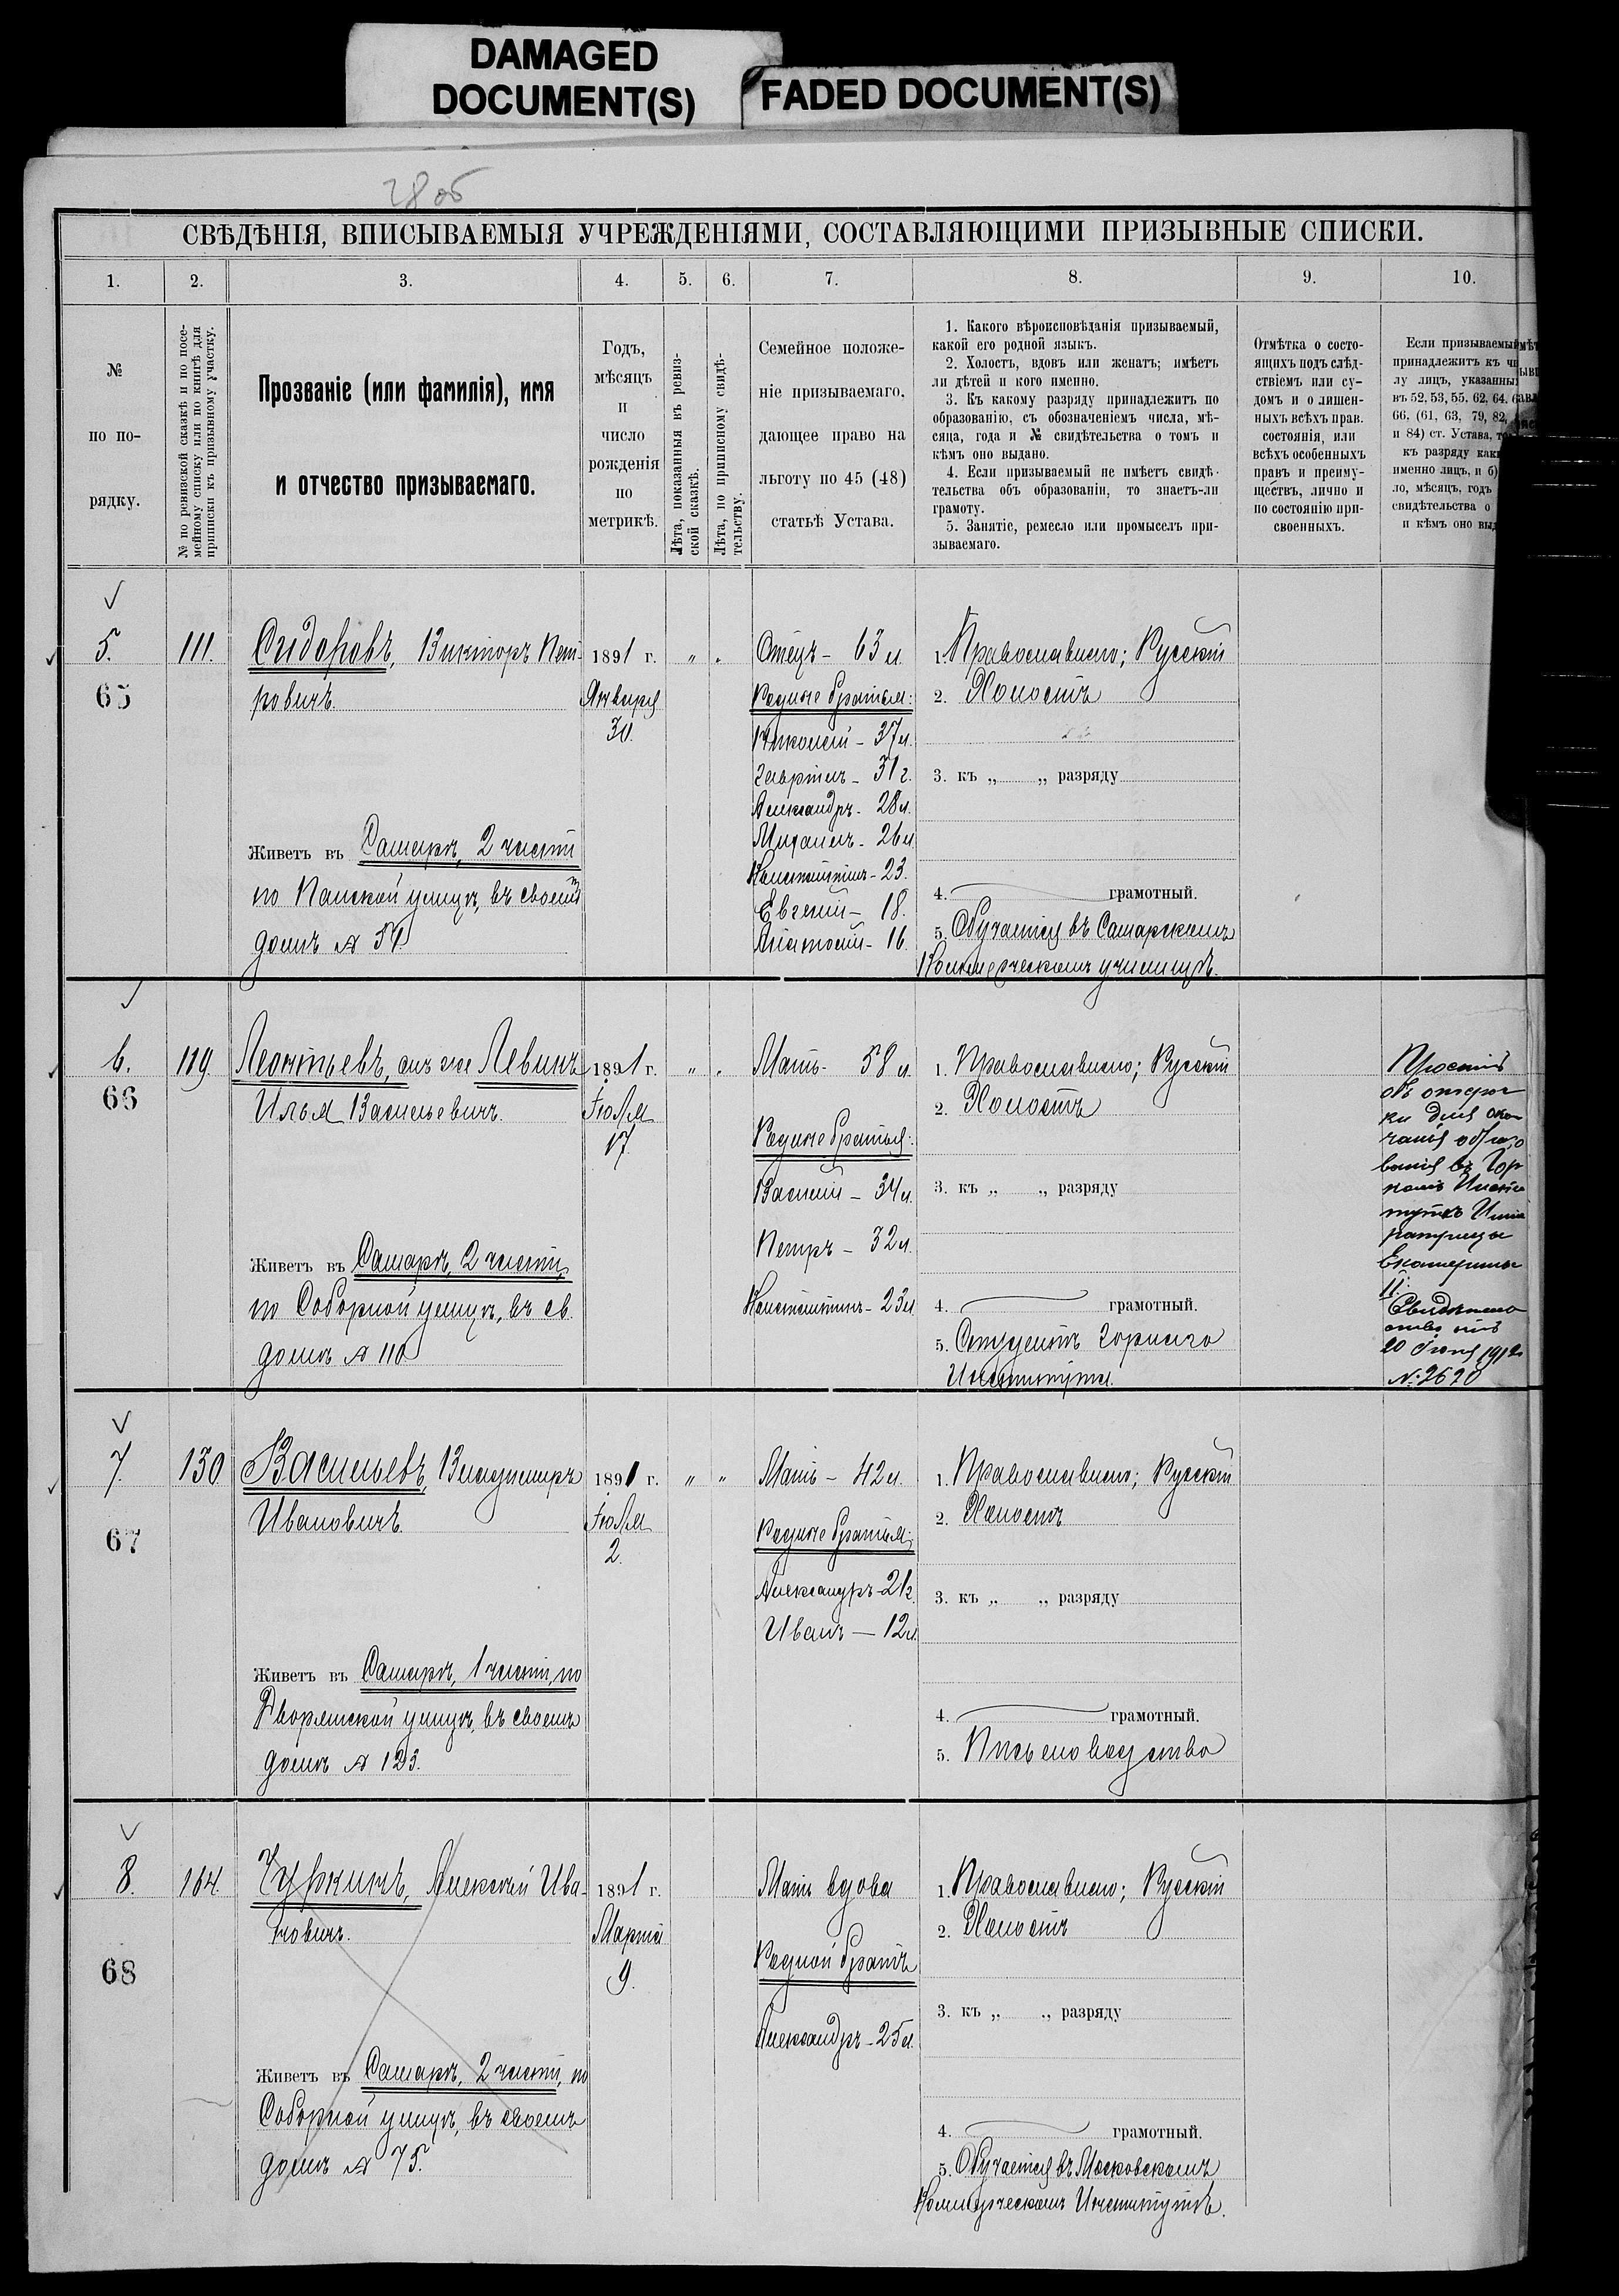 DAMAGED
DOCUMENT(S)
FADED DOCUMENT(S)
28 об
СВѢДѢНІЯ, ВПИСЫВАЕМЫЯ УЧРЕЖДЕНІЯМИ, СОСТАВЛЯЮЩИМИ ПРИЗЫВНЫЕ СПИСКИ.
1. 2. 3. 4. 5. 6. 7. 8. 9. 10.
№
по по-
рядку.
№ по ревизской сказкѣ и по посе-
мейному списку или по книгѣ для
приписки къ призывному участку.
Прозваніе (или фамилія), имя
и отчество призываемаго.
Годъ,
мѣсяцъ
и
число
рожденія
по
метрикѣ.
Лѣта, показанныя въ ревиз-
ской сказкѣ.
Лѣта, по приписному свидѣ-
тельству.
Семейное положе-
ніе призываемаго,
дающее право на
льготу по 45 (48)
статьѣ Устава.
1. Какого вѣроисповѣданія призываемый,
какой его родной языкъ.
2. Холостъ, вдовъ или женатъ; имѣетъ
ли дѣтей и кого именно.
3. Къ какому разряду принадлежитъ по
образованію, съ обозначеніемъ числа, мѣ-
сяца, года и № свидѣтельства о томъ и
кѣмъ оно выдано.
4. Если призываемый не имѣетъ свидѣ-
тельства объ образованіи, то знаетъ-ли
грамоту.
5. Занятіе, ремесло или промыселъ при-
зываемаго.
Отмѣтка о состо-
ящихъ подъ слѣд-
ствіемъ или су-
домъ и о лишен-
ныхъ всѣхъ прав.
состоянія, или
всѣхъ особенныхъ
правъ и преиму-
ществъ, лично и
по состоянію при-
своенныхъ.
Если призываемый
принадлежитъ къ чи
лу лицъ, указанны
въ 52, 53, 55. 62, 64.
66. (61, 63, 79, 82,
и 84) ст. Устава, то
къ разряду как
именно лицъ, и б)
ло, мѣсяцъ, годъ
свидѣтельства о
и кѣмъ оно выд
5.
65
111.
Сидоровъ, Викторъ Пет-
ровичъ.
Живетъ въ Самарѣ, 2 части
по Панской улицѣ, въ своемъ
домѣ № 54
1891 г.
Января
30.
„ „
Отецъ - 63 л.
Родные братья:
Николай - 37 л.
Гавріилъ - 31 г.
Александръ - 28 л.
Михаилъ - 26 л.
Константинъ - 23.
Евгеній - 18.
Анатолій - 16.
1. Православнаго; Русскій
2. Холостъ
3. къ „ „ разряду
4. грамотный.
5. Обучается въ Самарскомъ
Коммерческомъ училищѣ.
6.
66
119.
Леонтьевъ, онъ же Левинъ
Илья Васильевичъ.
Живетъ въ Самарѣ, 2 части,
по Соборной улицѣ, въ св.
домѣ № 110
1891 г.
Іюля
17.
„ „
Мать - 58 л.
Родные братья:
Василій - 34 л.
Петръ - 32 л.
Константинъ - 23 л.
1. Православнаго; Русскій
2. Холостъ
3. къ „ „ разряду
4. грамотный.
5. Студентъ Горнаго
Института.
Проситъ
объ отсроч
ки для окон
чанія образо
ванія въ Гор
номъ Инсти
тутѣ Импе
ратрицы
Екатерины
II.
Свидѣтель
ство отъ
20 Іюня 1912
№ 2620
7.
67
130
Васильевъ, Владимиръ
Ивановичъ.
Живетъ въ Самарѣ, 1 части, по
Дворянской улицѣ, въ своемъ
домѣ № 123.
1891 г.
Іюля
2.
„ „
Мать - 42 л.
Родные братья:
Александръ - 21 г.
Иванъ - 12 л.
1. Православнаго; Русскій
2. Холостъ
3. къ „ „ разряду
4. грамотный.
5. Письмоводство
8.
68
164.
Чуркинъ, Алексѣй Ива-
новичъ.
Живетъ въ Самарѣ, 2 части, по
Соборной улицѣ, въ своемъ
домѣ № 75.
1891 г.
Марта
9.
Мать вдова
Родной братъ
Александръ - 25 л.
1. Православнаго; Русскій
2. Холостъ
3. къ „ „ разряду
4. грамотный.
5. Обучается въ Московскомъ
Коммерческомъ Институтѣ.